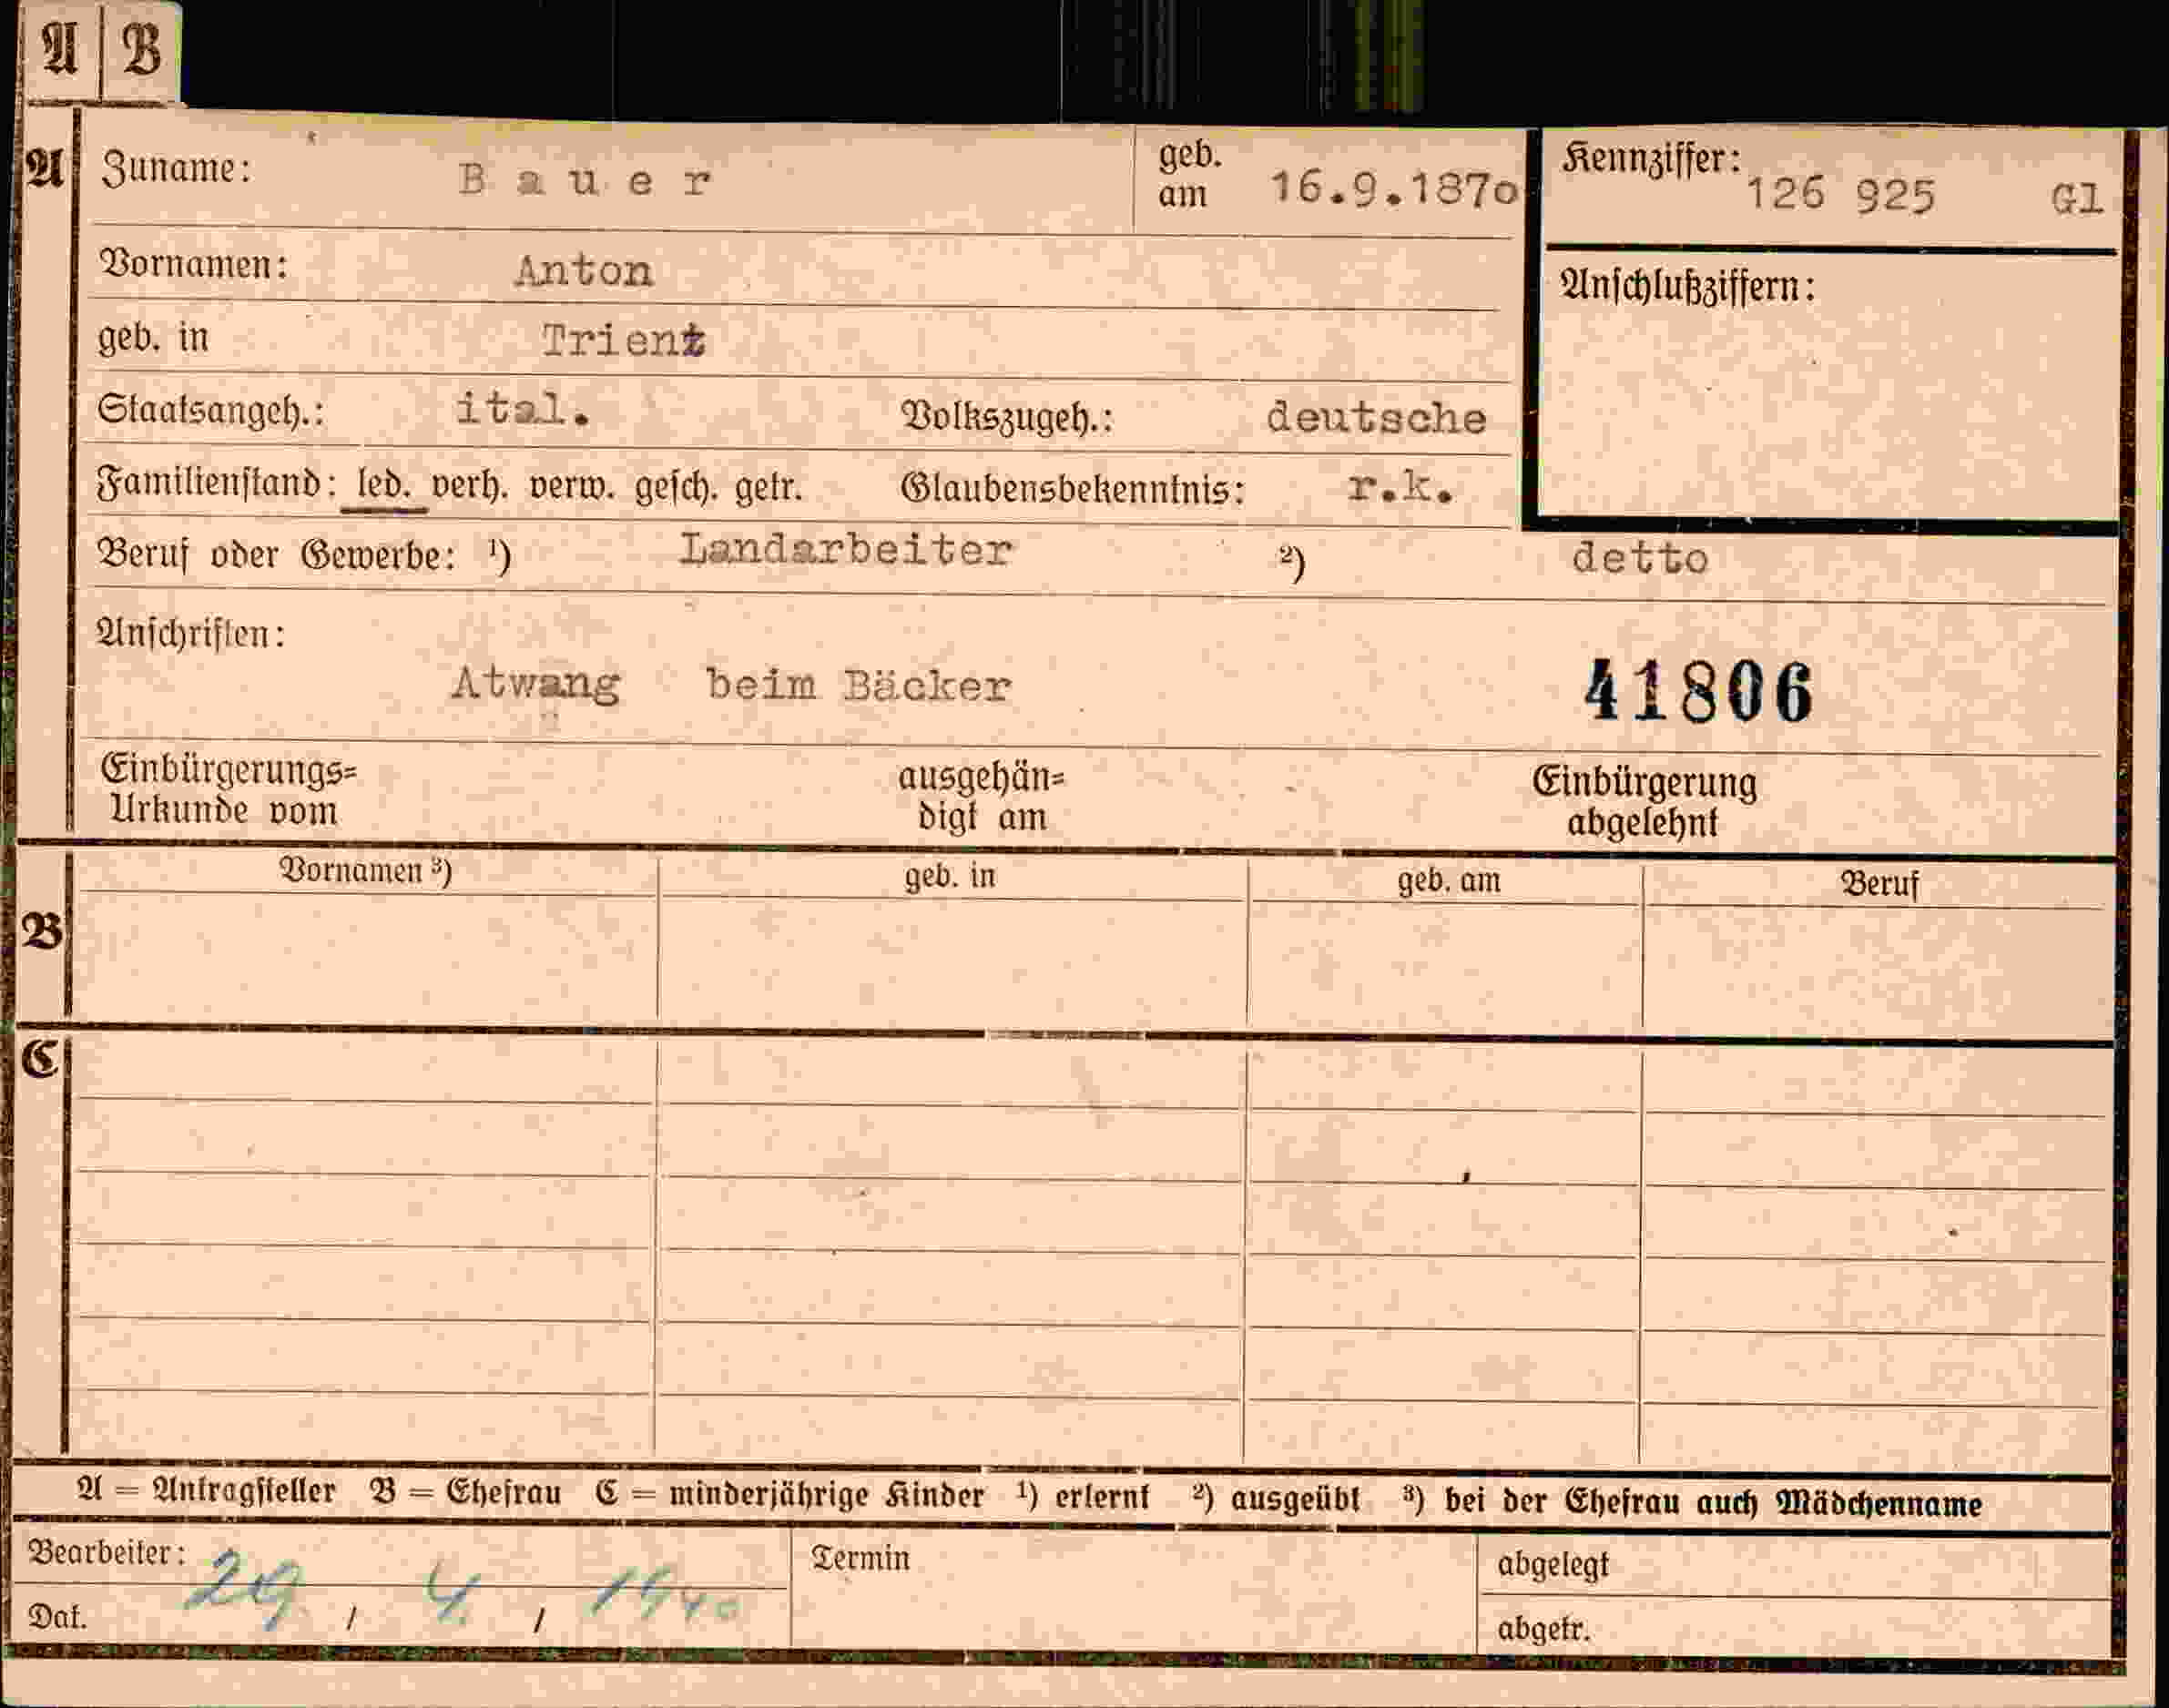 A B
A Zuname: Bauer geb. am 16.9.1870 Kennziffer: 126 925 Gl
Vornamen: Anton Anschlußziffern:
geb. in Trient
Staatsangeh.: ital. Volkszugeh.: deutsche
Familienstand: led. verh. verw. gesch. getr. Glaubensbekenntnis: r.k.
Beruf oder Gewerbe: ¹) Landarbeiter ²) detto
Anschriften:
Atwang beim Bäcker 41806
Einbürgerungs= ausgehän= Einbürgerung
Urkunde vom digt am abgelehnt
Vornamen ³) geb. in geb. am Beruf
B
C
A = Antragsteller B = Ehefrau C = minderjährige Kinder ¹) erlernt ²) ausgeübt ³) bei der Ehefrau auch Mädchenname
Bearbeiter: Termin abgelegt
Dat. 29 / 4 / 1940 abgetr.